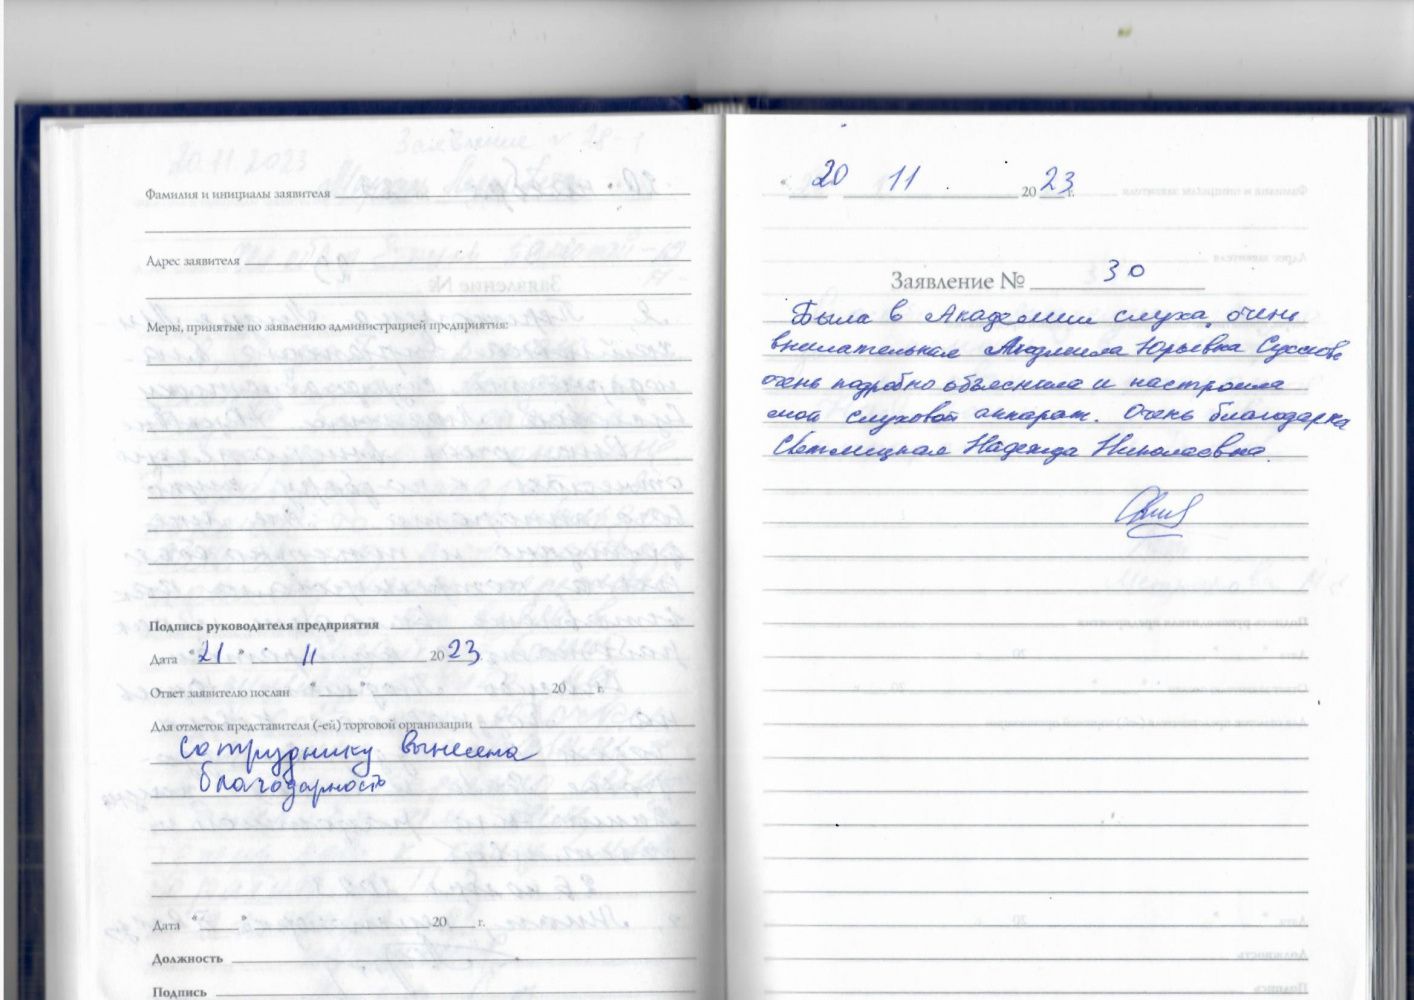 Фамилия и инициалы заявителя
Адрес заявителя
Меры, принятые по заявлению администрацией предприятия:
Подпись руководителя предприятия
Дата "21" 11 2023г.
Ответ заявителю послан " " 20 г.
Для отметок представителя (-ей) торговой организации
Сотруднику вынесена
благодарность
Дата " " 20 г.
Должность
Подпись
20 11 2023г.
Заявление № 30
Была в Академии слуха, очень
внимательная Людмила Юрьевна
очень подробно объяснила и настроила
мой слуховой аппарат. Очень благодарна
Светлицкая Надежда Николаевна